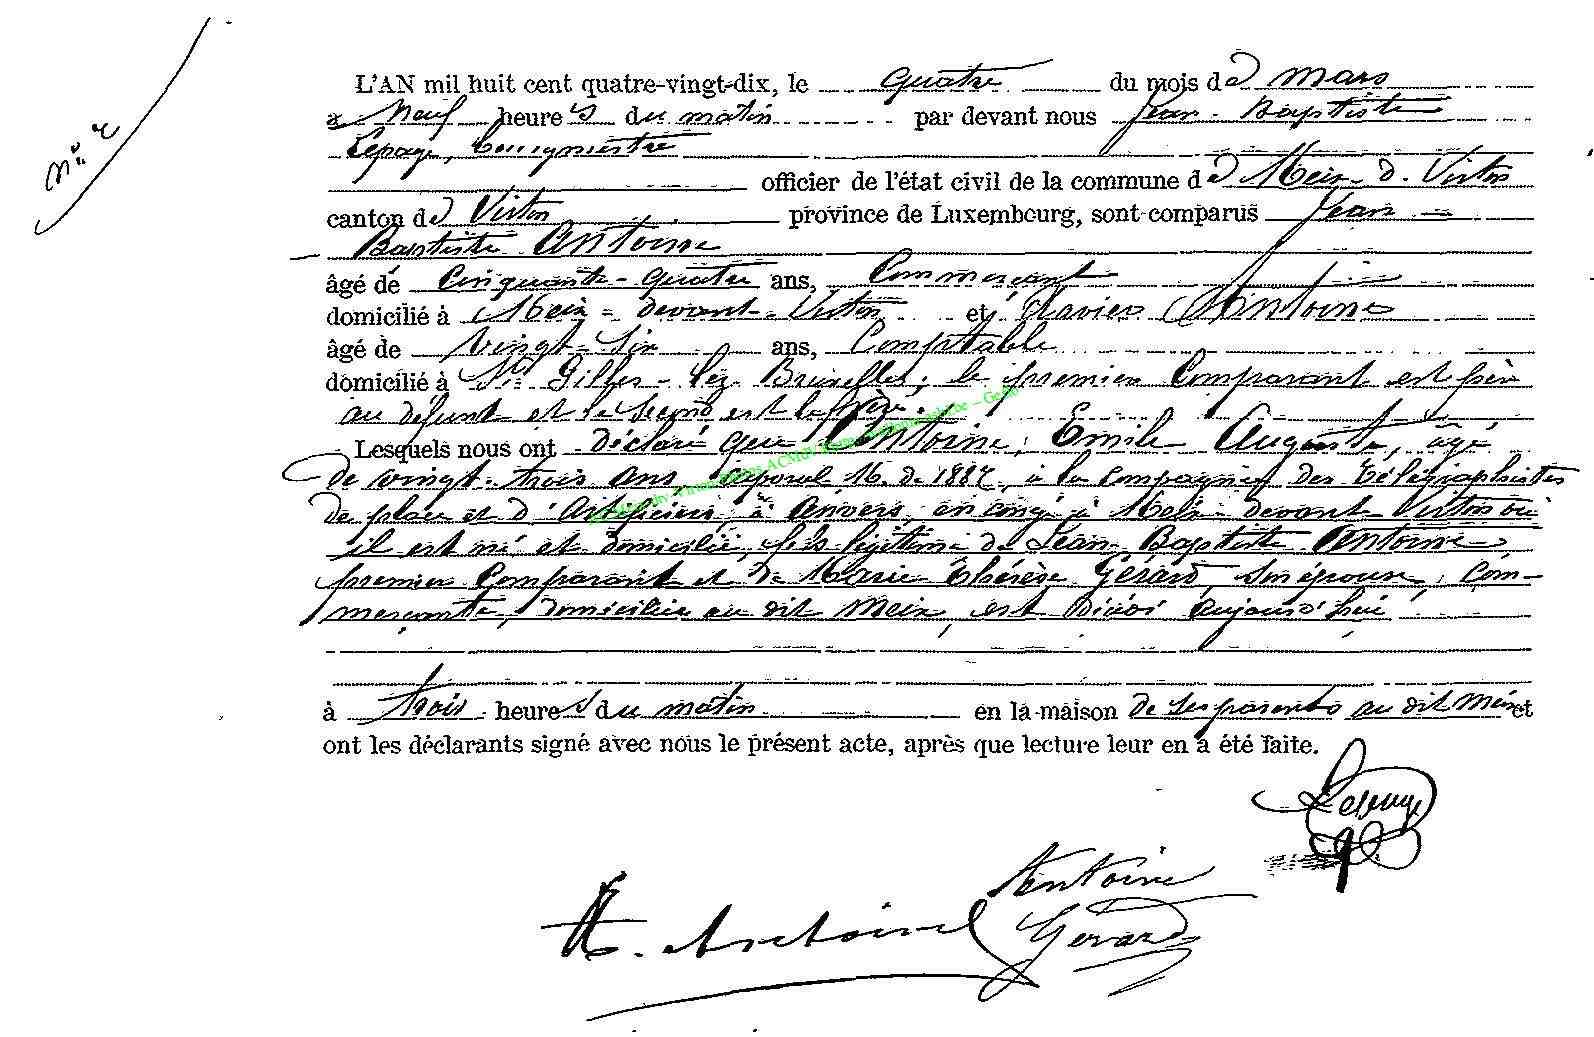 N° 2
L'AN mil huit cent quatre-vingt-dix, le quatre du mois de mars
à neuf heures du matin par devant nous Jean-Baptiste
Lepage, bourgmestre
officier de l'état civil de la commune de Meix-d.-Virton
canton de Virton province de Luxembourg, sont comparus Jean
Baptiste Antoine
âgé de cinquante-quatre ans, Commerçant
domicilié à Meix-devant-Virton et Xavier Antoine
âgé de vingt-six ans, Comptable
domicilié à St Gilles-lez-Bruxelles; le premier comparant est père
au défunt et le second est le frère.
Lesquels nous ont déclaré que Antoine, Emile Auguste, âgé
de vingt-trois ans caporal 16. de 1887, à la compagnie des télégraphistes
de place et d'artificiers, à Anvers, en congé à Meix-devant-Virton où
il est né et domicilié, fils légitime de Jean Baptiste Antoine
premier comparant et de Marie Thérèse Gérard, son épouse, com-
merçante, domiciliée au dit Meix, est décédé aujourd'hui
à trois heures du matin en la maison de ses parents au dit Meix et
ont les déclarants signé avec nous le présent acte, après que lecture leur en a été faite.
Lepage
Antoine
Gérard
X. Antoine